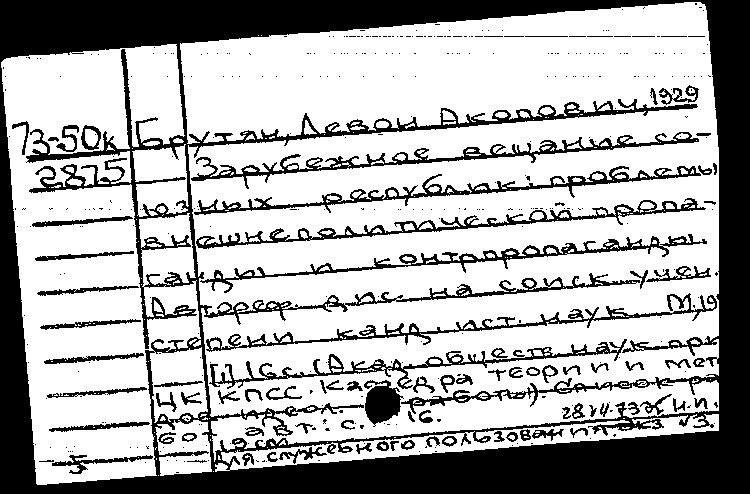 73-50к Брутян, Левон Акопович, 1929
2875 Зарубежное вещание со-
юзных республик: проблемы
внешнеполитической пропа-
ганды и контрпропаганды.
Автореф. дис. на соиск. учен.
степени канд. ист. наук. М, 19
[1], 16 с. (Акад. обществ. наук при
ЦК КПСС. Кафедра теории и мет
дов идеол. работы). Список ра
бот авт.: с. 16. 28 Н.П.
19 см
Для служебного пользования. Экз №3.